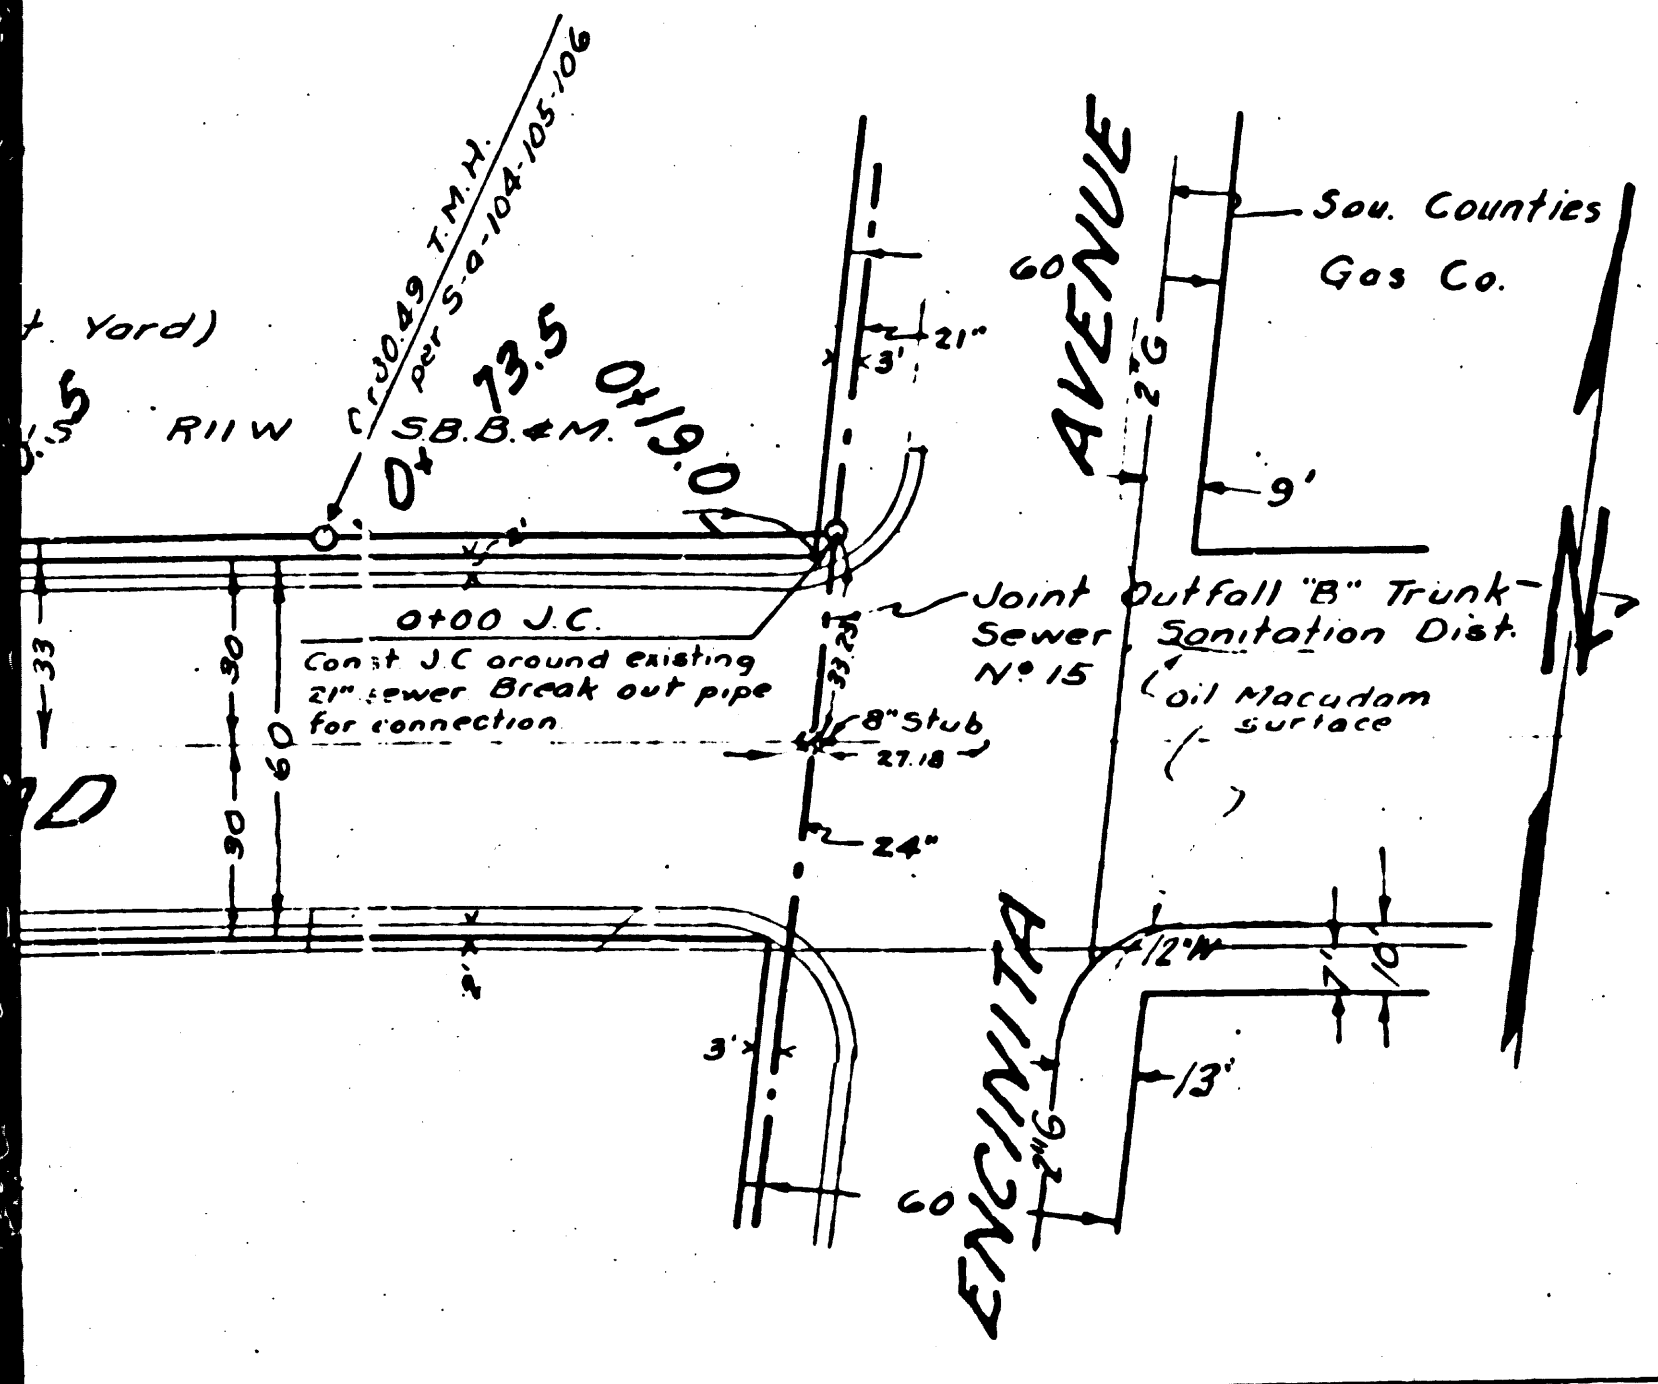 30.49 T.M.H.
per S-a-104-105-106
Yard)
5
R11W S.B.B.&M.
0+
73.5
0+19.0
AVENUE
60
Sou. Counties
Gas Co.
21"
3'
2"G
9'
2'
0+00 J.C.
Const J.C around existing
21" sewer Break out pipe
for connection
33
30
60
30
33.29
Joint Outfall "B" Trunk
Sewer Sanitation Dist.
Nº 15
Oil Macadam
surface
8" Stub
27.18
24"
N
2'
3'
12"W
7'
10'
13'
2"G
60
ENCINITA